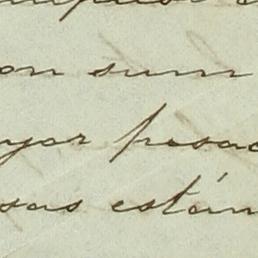 on sum
yor pesad
sas están